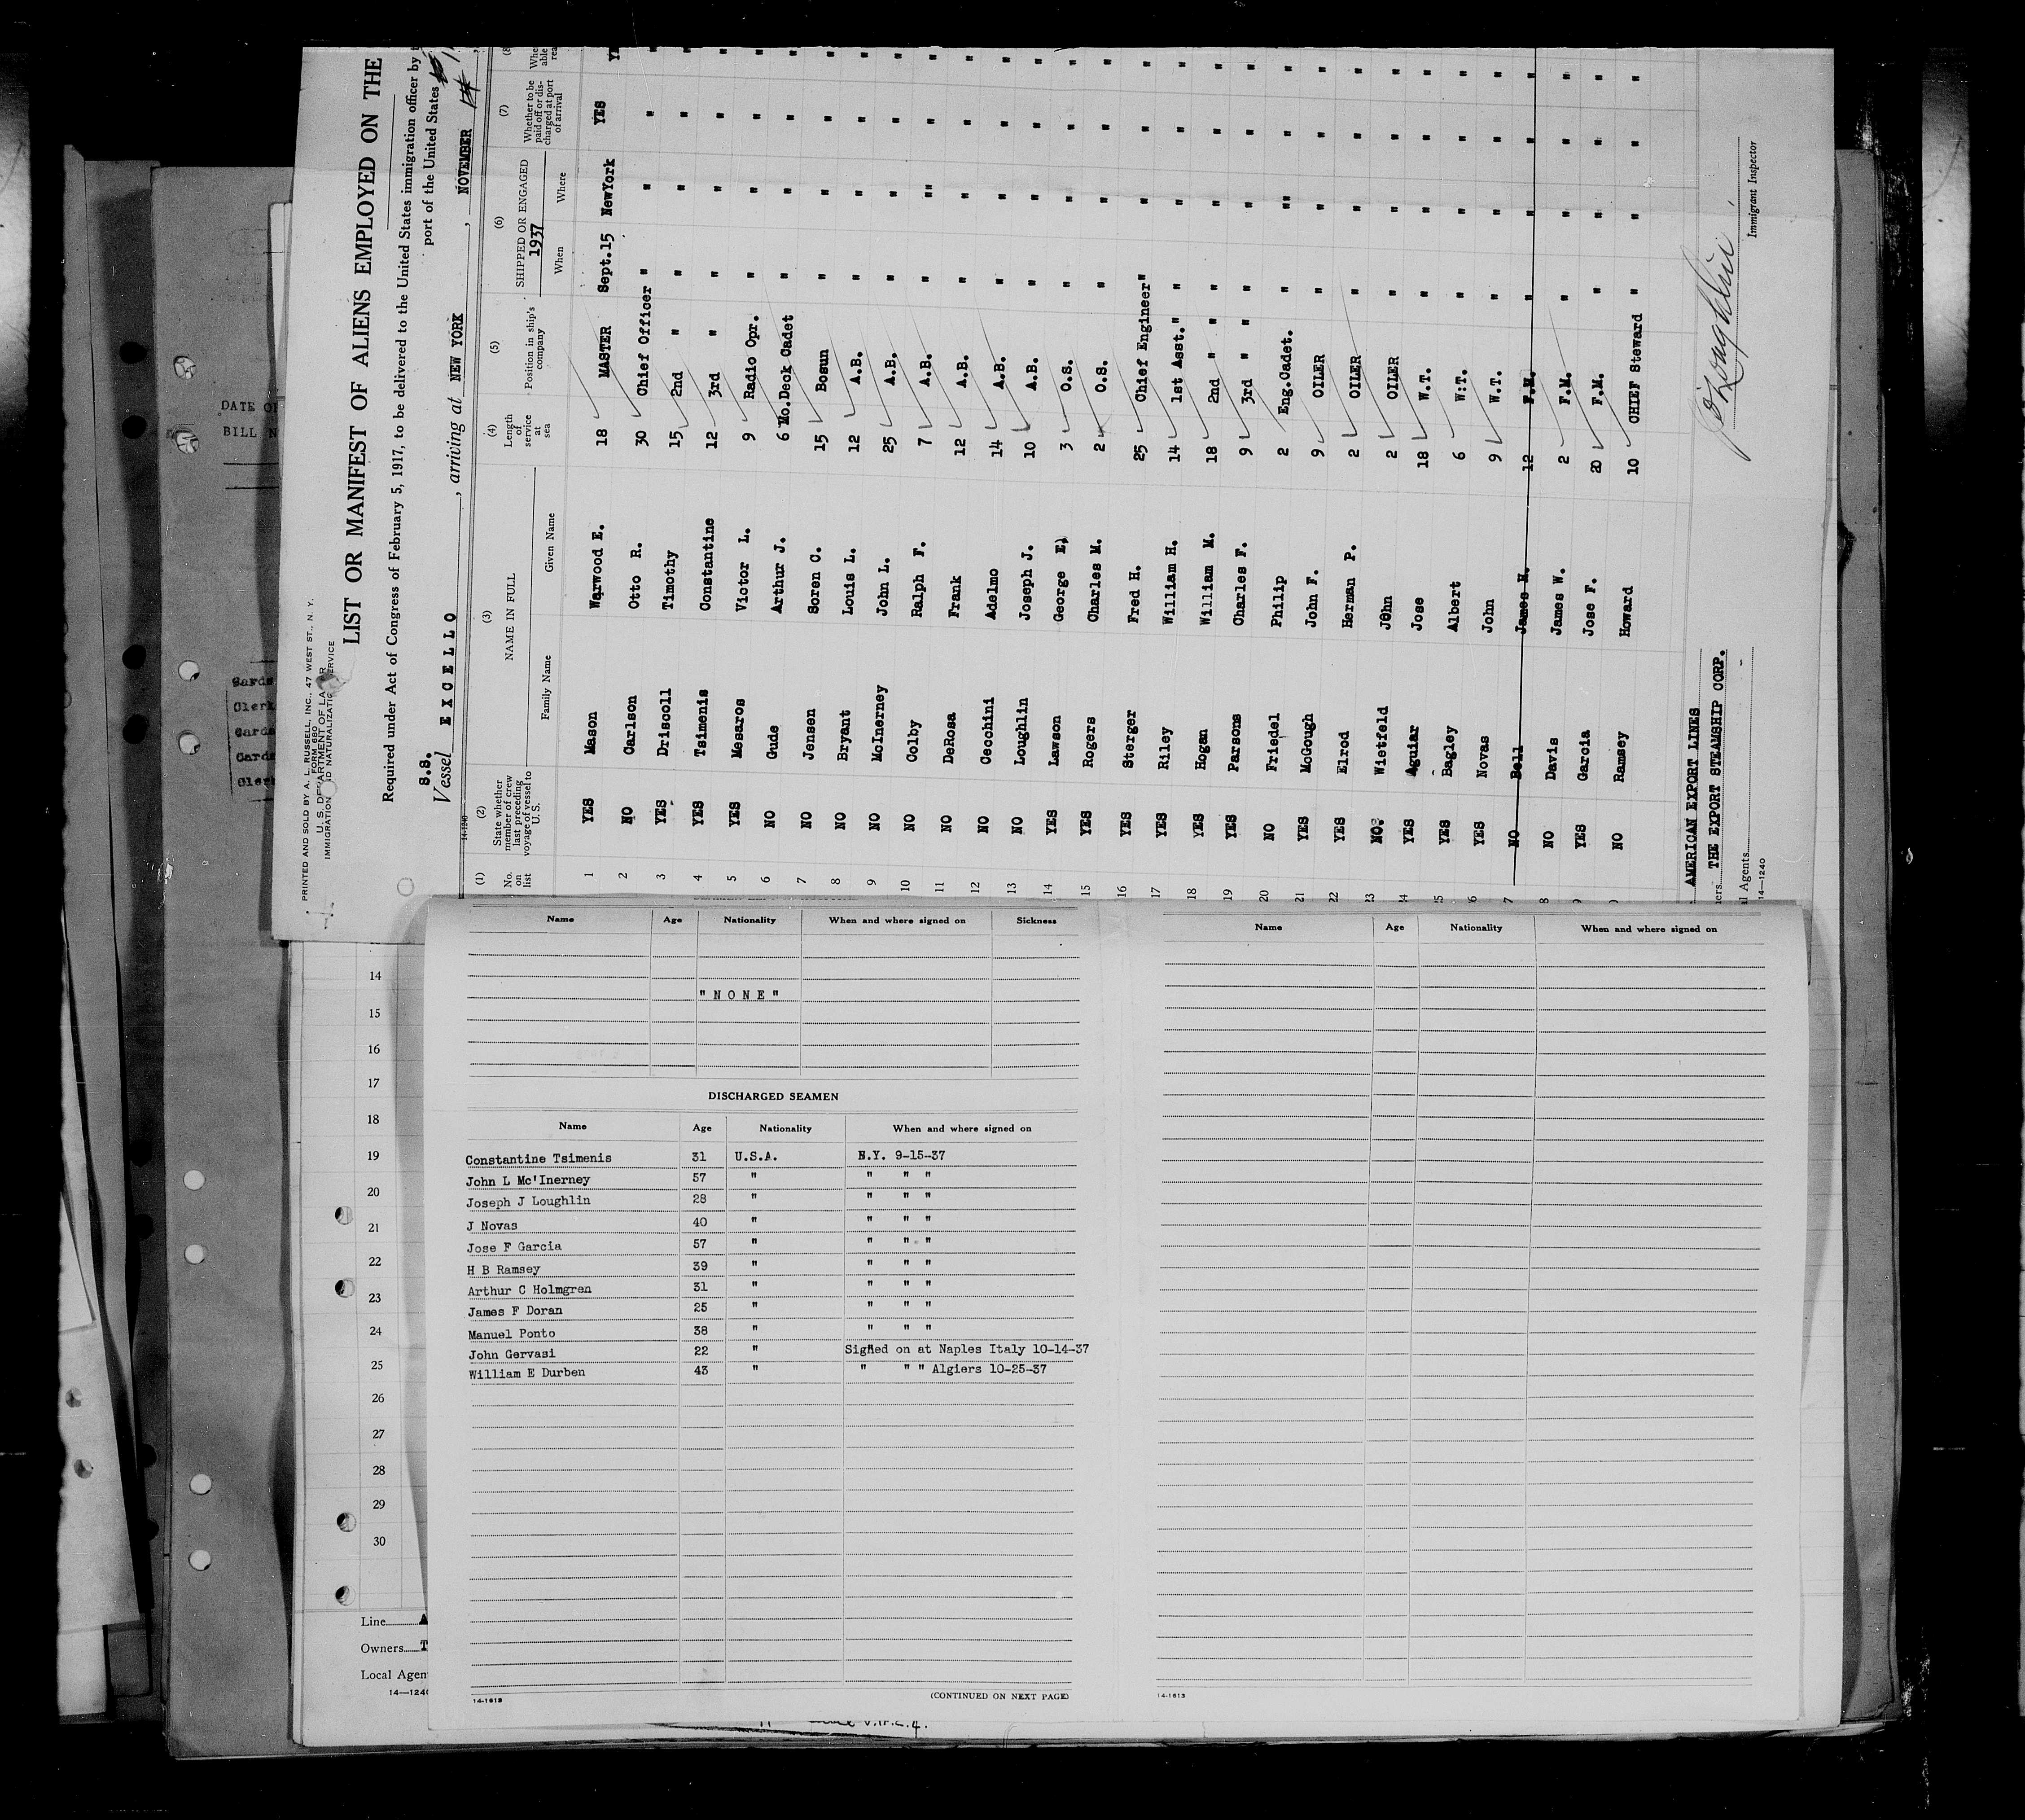 PRINTED AND SOLD BY A. L. RUSSELL, INC., 47 WEST ST., N. Y.
FORM 680
U. S. DEPARTMENT OF LABOR
IMMIGRATION AND NATURALIZATION SERVICE
LIST OR MANIFEST OF ALIENS EMPLOYED ON THE
Required under Act of Congress of February 5, 1917, to be delivered to the United States immigration officer by
port of the United States
S.S.
Vessel EXCELLO, arriving at NEW YORK, NOVEMBER
14-1240
(1) (2) (3) (4) (5) (6) (7) (8
No. on list State whether member of crew last preceding voyage of vessel to U.S. NAME IN FULL Length of service at sea Position in ship's company SHIPPED OR ENGAGED 1937 Whether to be paid off or discharged at port of arrival
Family Name Given Name When Where
1 YES Mason Warwood E. 18 MASTER Sept.15 NewYork YES
2 NO Carlson Otto R. 30 Chief Officer " " " "
3 YES Driscoll Timothy 15 2nd " " " " "
4 YES Tsimenis Constantine 12 3rd " " " " "
5 YES Mesaros Victor L. 9 Radio Opr. " " " "
6 NO Gude Arthur J. 6 Mo. Deck Cadet " " " "
7 NO Jensen Soren C. 15 Bosun " " " "
8 NO Bryant Louis L. 12 A.B. " " " "
9 NO McInerney John L. 25 A.B. " " " "
10 NO Colby Ralph F. 7 A.B. " "" " "
11 NO DeRosa Frank 12 A.B. " " " "
12 NO Cecchini Adelmo 14 A.B. " " " "
13 NO Loughlin Joseph J. 10 A.B. " " " "
14 YES Lawson George E. 3 O.S. " " " "
15 YES Rogers Charles M. 2 O.S. " " " "
16 YES Sterger Fred H. 25 Chief Engineer " " " "
17 YES Riley William H. 14 1st Asst." " " " "
18 YES Hogan William M. 18 2nd " " " " " "
19 YES Parsons Charles F. 9 3rd " " " " " "
20 NO Friedel Philip 2 Eng.Cadet. " "" " "
21 YES McGough John F. 9 OILER " " " "
22 YES Elrod Herman P. 2 OILER " " " "
23 NO. Wietfeld John 2 OILER " " " "
24 YES Aguiar Jose 18 W.T. " " " "
25 YES Bagley Albert 6 W.T. " " " "
26 YES Novas John 9 W.T. " " " "
7 NO Bell James H. 12 F.M. " " " "
8 NO Davis James W. 2 F.M. " " " "
9 YES Garcia Jose F. 20 F.M. " " " "
0 NO Ramsey Howard 10 CHIEF Steward " " " "
AMERICAN EXPORT LINES
ners THE EXPORT STEAMSHIP CORP.
l Agents
14—1240
Immigrant Inspector
DATE O
BILL N
Cards
Clerk
Cards
Cards
Clerk
14
15
16
17
18
19
20
21
22
23
24
25
26
27
28
29
30
Line A
Owners T
Local Agen
14—1240
Name Age Nationality When and where signed on Sickness
"NONE"
DISCHARGED SEAMEN
Name Age Nationality When and where signed on
Constantine Tsimenis 31 U.S.A. N.Y. 9-15-37
John L Mc'Inerney 57 " " " "
Joseph J Loughlin 28 " " " "
J Novas 40 " " " "
Jose F Garcia 57 " " " "
H B Ramsey 39 " " " "
Arthur C Holmgren 31 " " " "
James F Doran 25 " " " "
Manuel Ponto 38 " " " "
John Gervasi 22 " Signed on at Naples Italy 10-14-37
William E Durben 43 " " " " Algiers 10-25-37
14-1613
(CONTINUED ON NEXT PAGE)
Name Age Nationality When and where signed on
14-1613